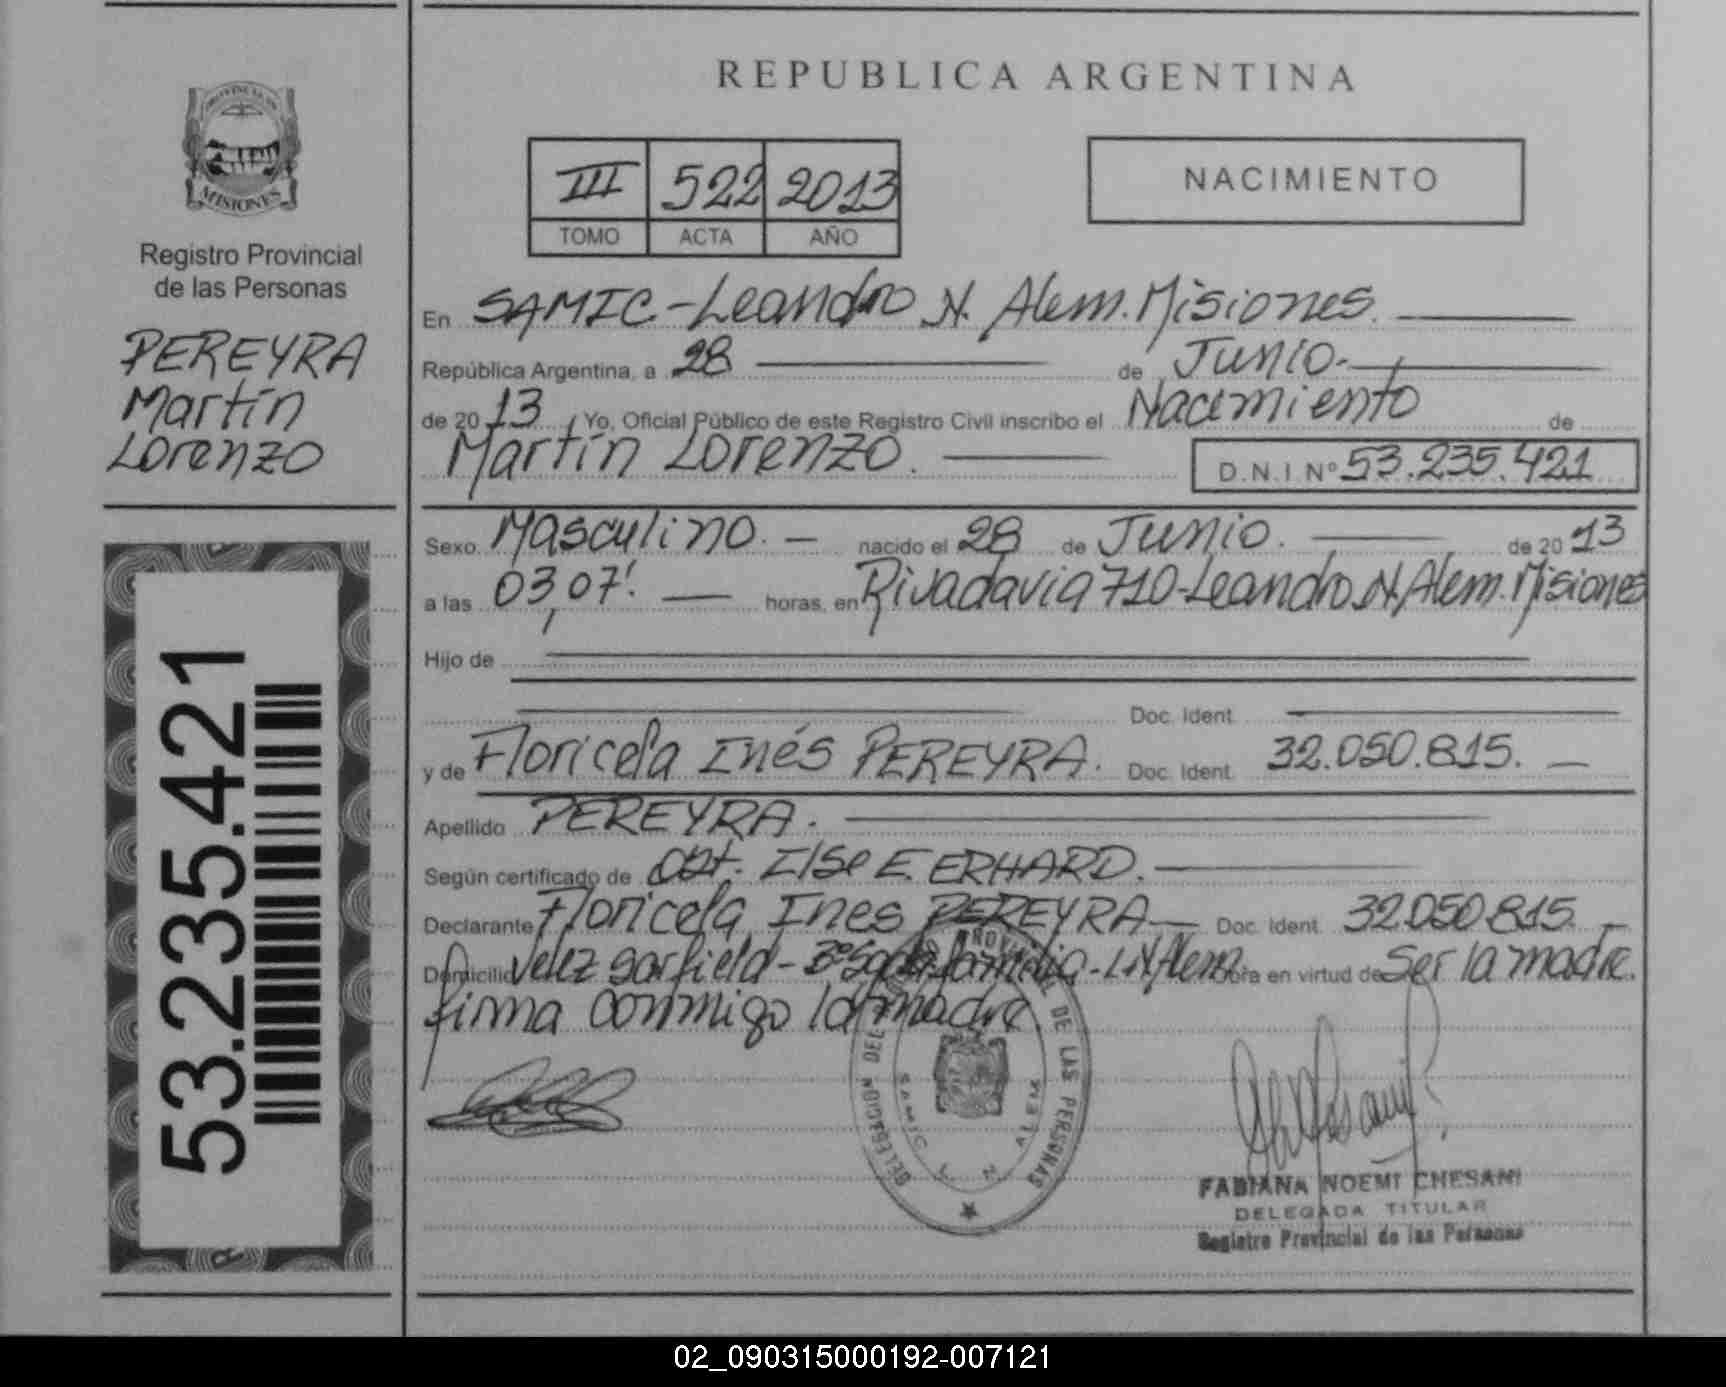 PROVINCIA DE
MISIONES
Registro Provincial
de las Personas
PEREYRA
Martín
Lorenzo
53.235.421
REPUBLICA ARGENTINA
III 522 2013
TOMO ACTA AÑO
NACIMIENTO
En SAMIC - Leandro N. Alem. Misiones.
República Argentina, a 28 de Junio.
de 20 13, Yo, Oficial Público de este Registro Civil inscribo el Nacimiento de
Martín Lorenzo. D.N.I Nº 53.235.421
Sexo Masculino. nacido el 28 de Junio. de 20 13
a las 03,07'. horas, en Rivadavia 710-Leandro N. Alem. Misiones
Hijo de
Doc. Ident.
y de Floricela Inés PEREYRA. Doc. Ident. 32.050.815.
Apellido PEREYRA.
Según certificado de Obt. Ilse E. ERHARD.
Declarante Floricela Ines PEREYRA Doc. Ident. 32.050.815.
Domicilio Velez Sarfield - Bº Sgda familia - L.N. Alem. obra en virtud de Ser la madre.
firma conmigo la madre
DELEGACION DEL REGISTRO PROVINCIAL DE LAS PERSONAS
SAMIC L N ALEM
FABIANA NOEMI CHESANI
DELEGADA TITULAR
Registro Provincial de las Personas
02_090315000192-007121